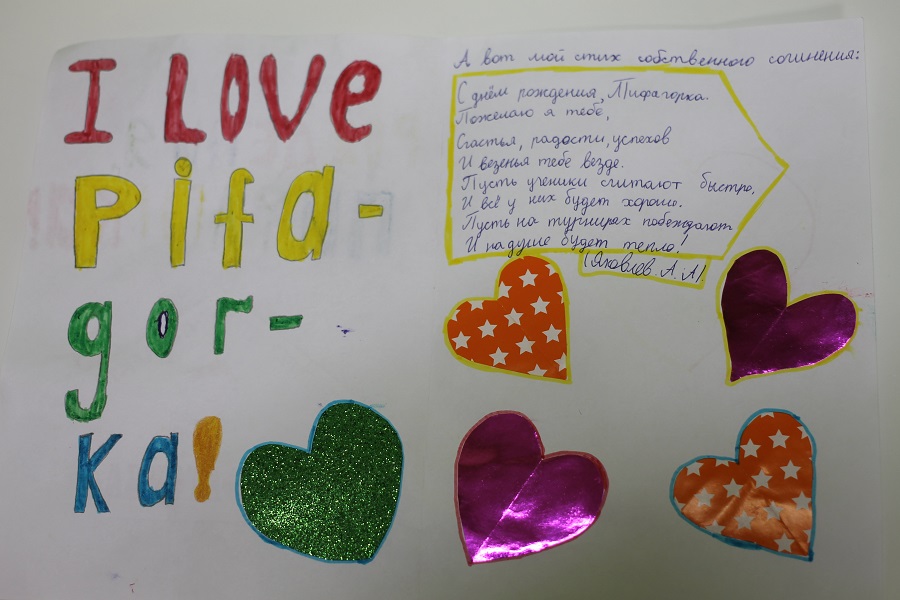 I LOVe
Pifa-
gor-
ka!
А вот мой стих собственного сочинения:
С днём рождения, Пифагорка.
Пожелаю я тебе,
Счастья, радости, успехов
И везенья тебе везде.
Пусть ученики считают быстро,
И всё у них будет хорошо.
Пусть на турнирах побеждают
И на душе будет тепло!
(Яковлев А. А).